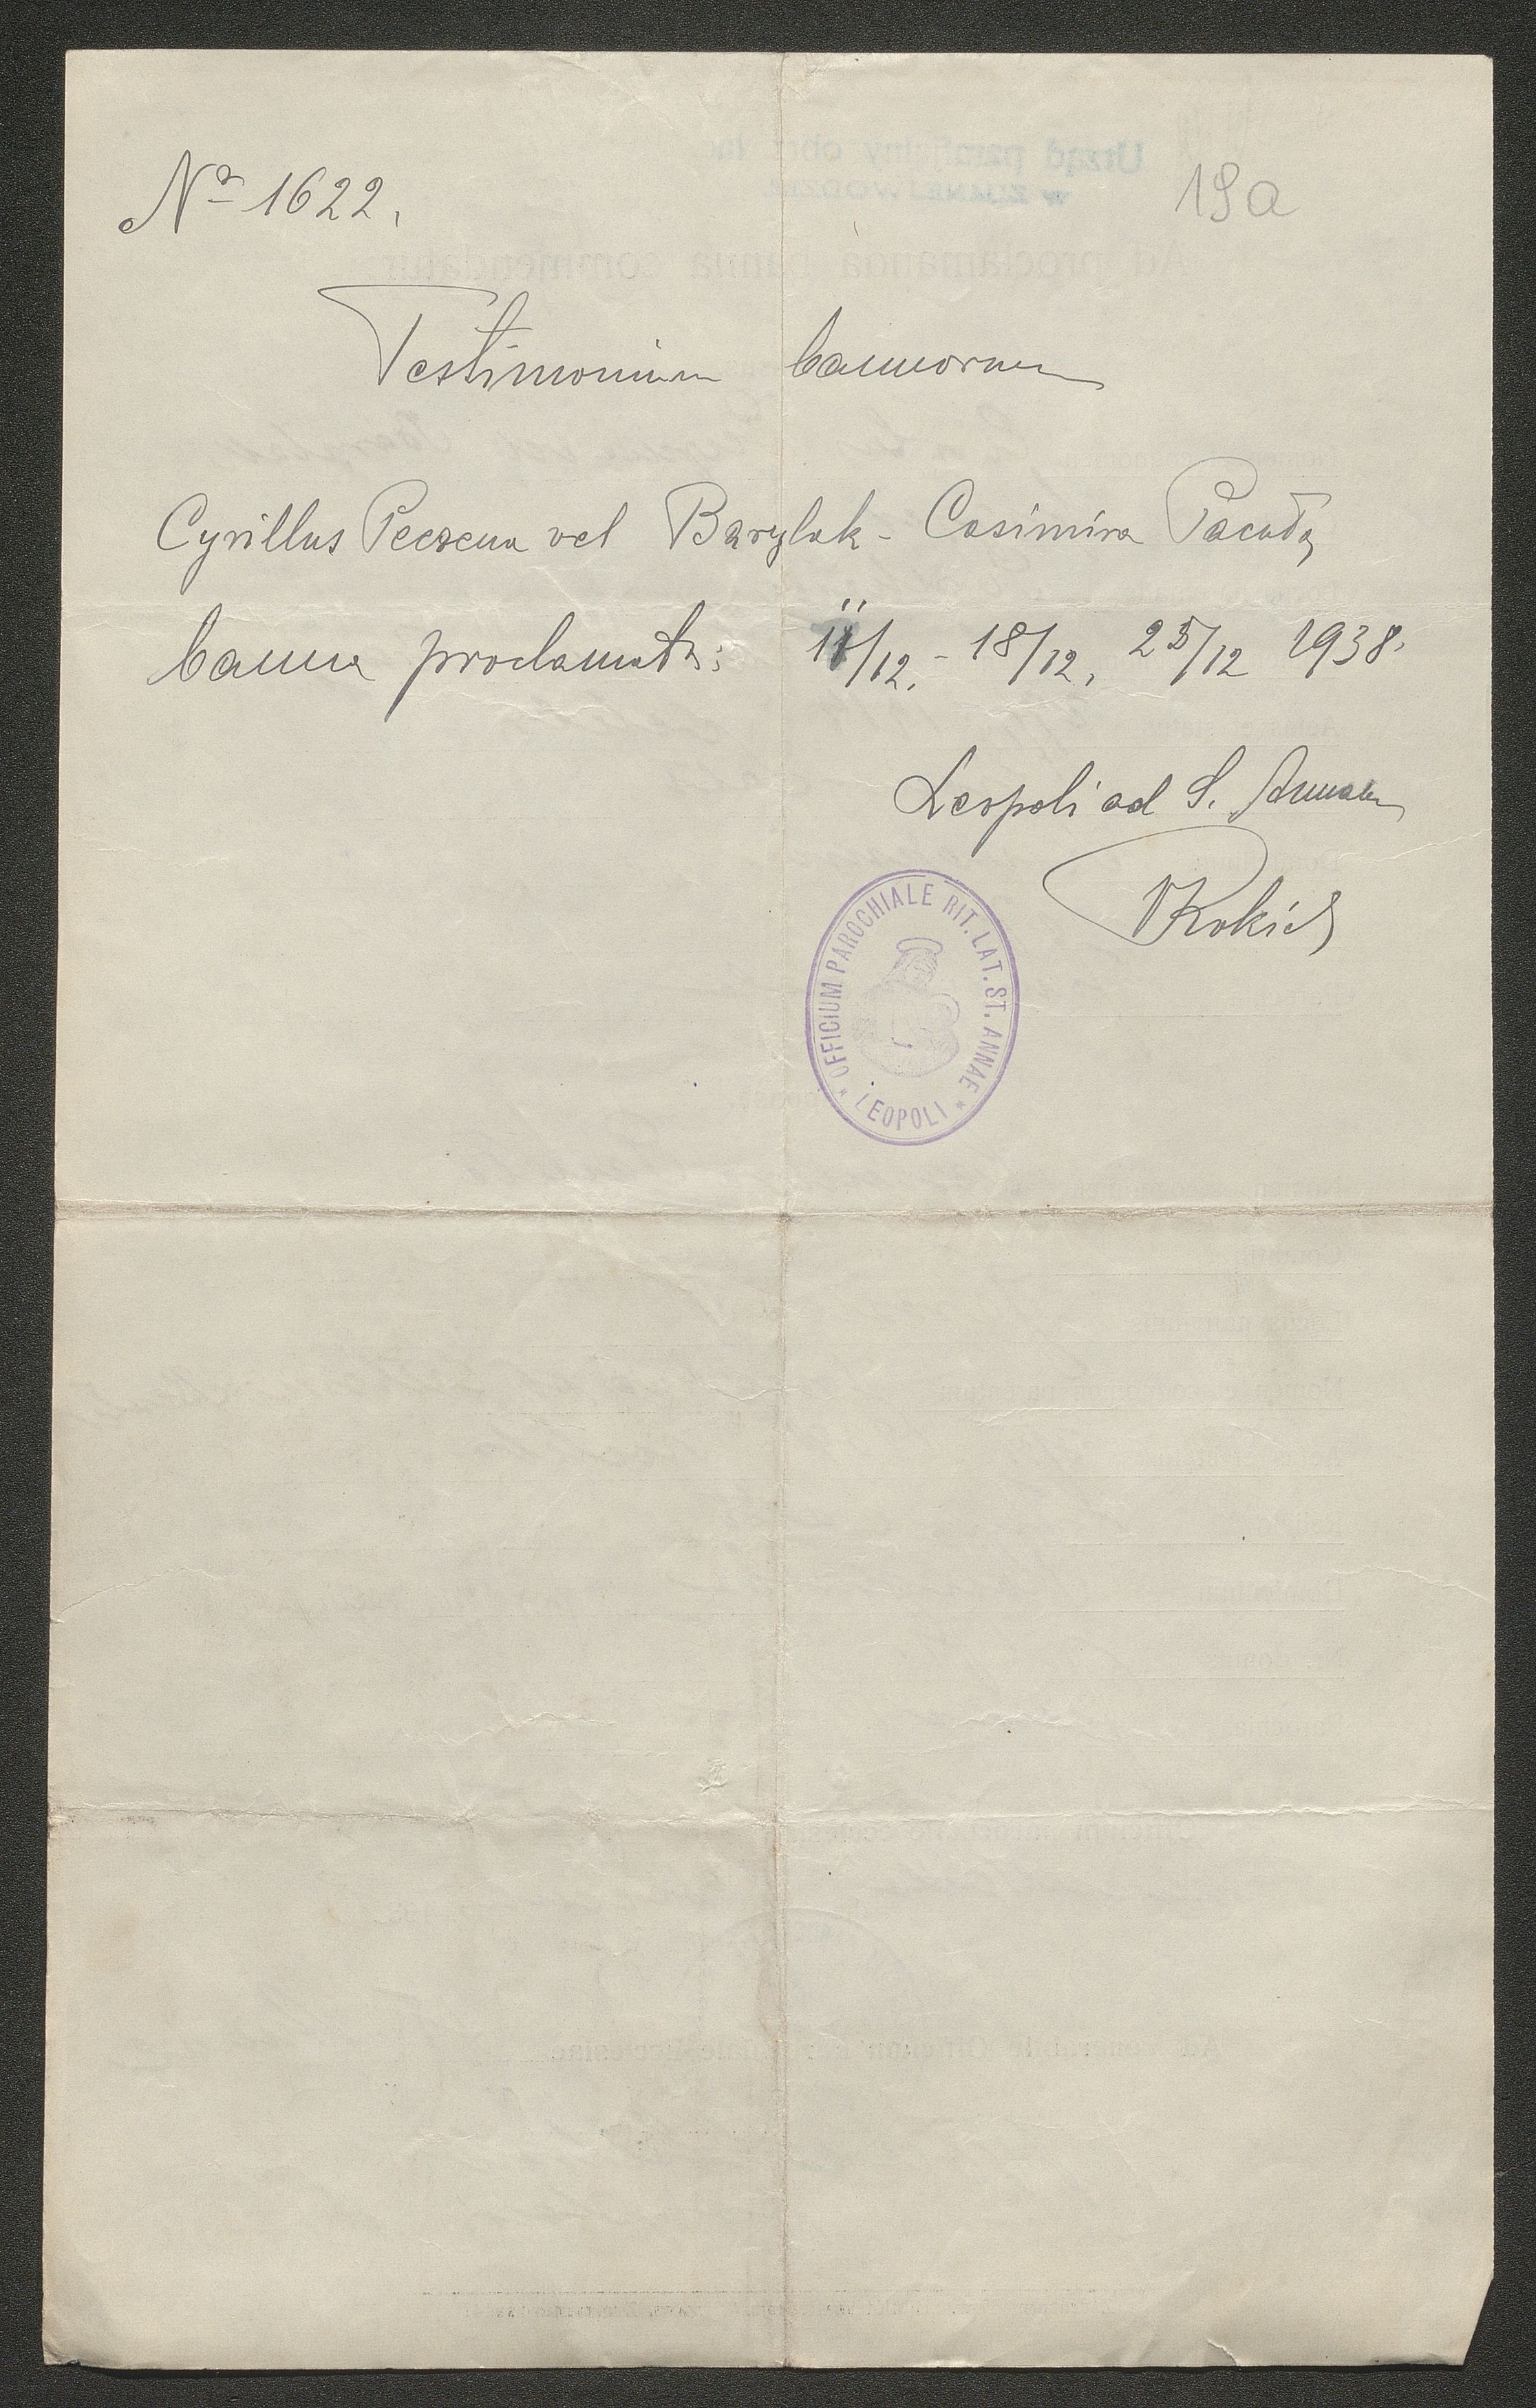 No 1622.
19a
Testimonium bannorum
Cyrillus Peczena vel Barylak - Casimira Pacuła
banna proclamata: 11/12. - 18/12, 25/12 1938.
Leopoli ad S. Annam
OFFICIUM PAROCHIALE RIT. LAT. ST. ANNAE
* LEOPOLI *